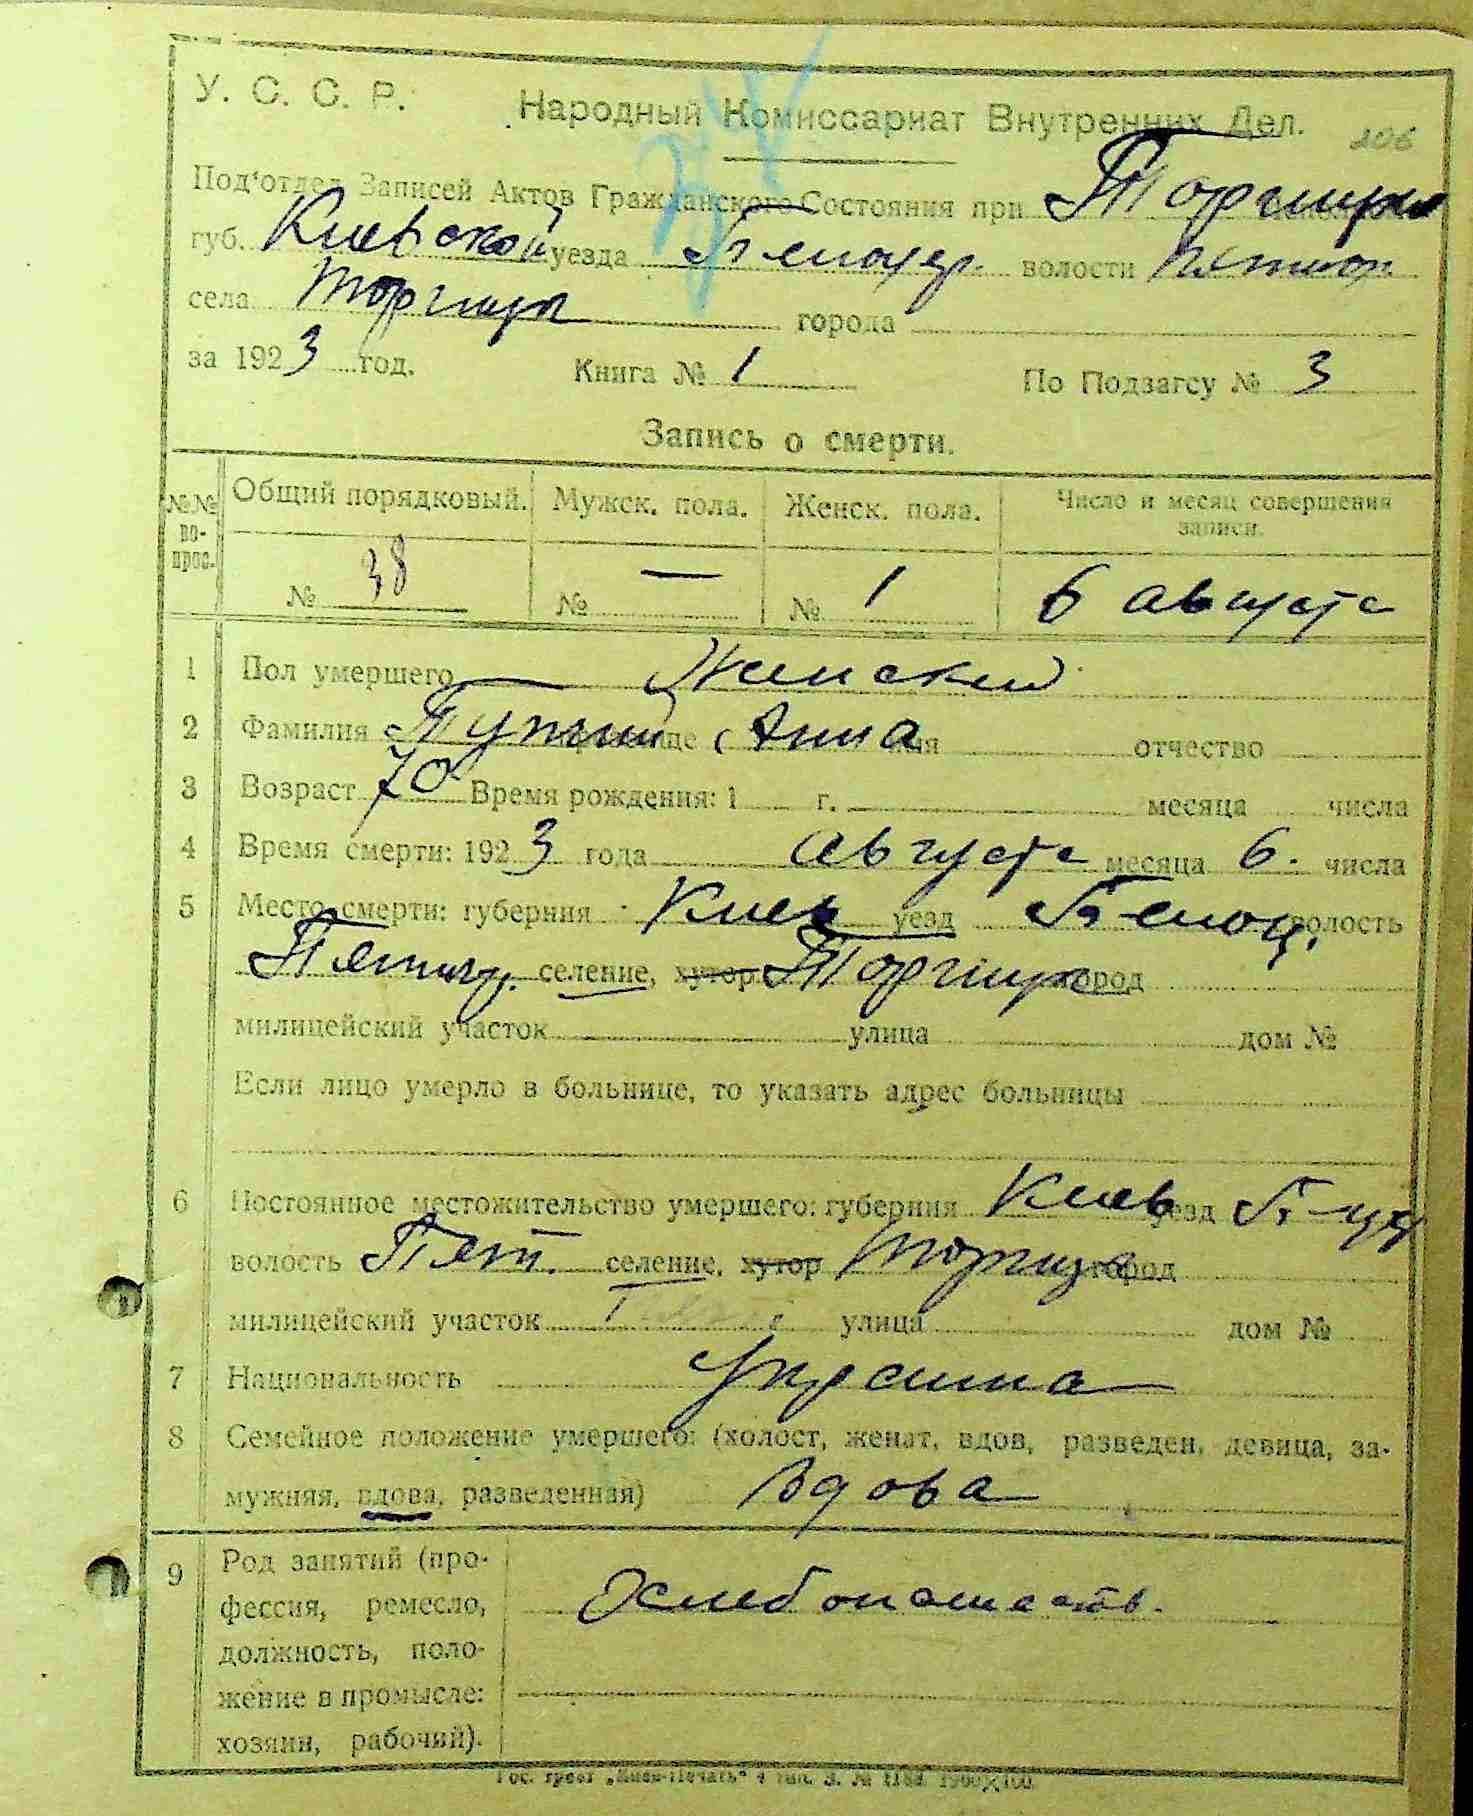 У. С. С. Р. Народный Комиссариат Внутренних Дел. 206
Под'отдел Записей Актов Гражданского Состояния при
губ. Киевской уезда волости
села города
за 1923 год. Книга № 1 По Подзагсу № 3
Запись о смерти.
№№ во-прос. Общий порядковый. Мужск. пола. Женск. пола. Число и месяц совершения записи.
№ 38 № — № 1 6 августа
1 Пол умершего Женский
2 Фамилия Анна отчество
3 Возраст 70 Время рождения: 1 г. месяца числа
4 Время смерти: 1923 года августа месяца 6. числа
5 Место смерти: губерния Киев уезд волость
селение, хутор город
милицейский участок улица дом №
Если лицо умерло в больнице, то указать адрес больницы
6 Постоянное местожительство умершего: губерния Киев уезд
волость Пят. селение, хутор город
милицейский участок улица дом №
7 Национальность
8 Семейное положение умершего: (холост, женат, вдов, разведен, девица, за-
мужняя, вдова, разведенная) Вдова
9 Род занятий (про-
фессия, ремесло, Хлебопашеств.
должность, поло-
жение в промысле:
хозяин, рабочий).